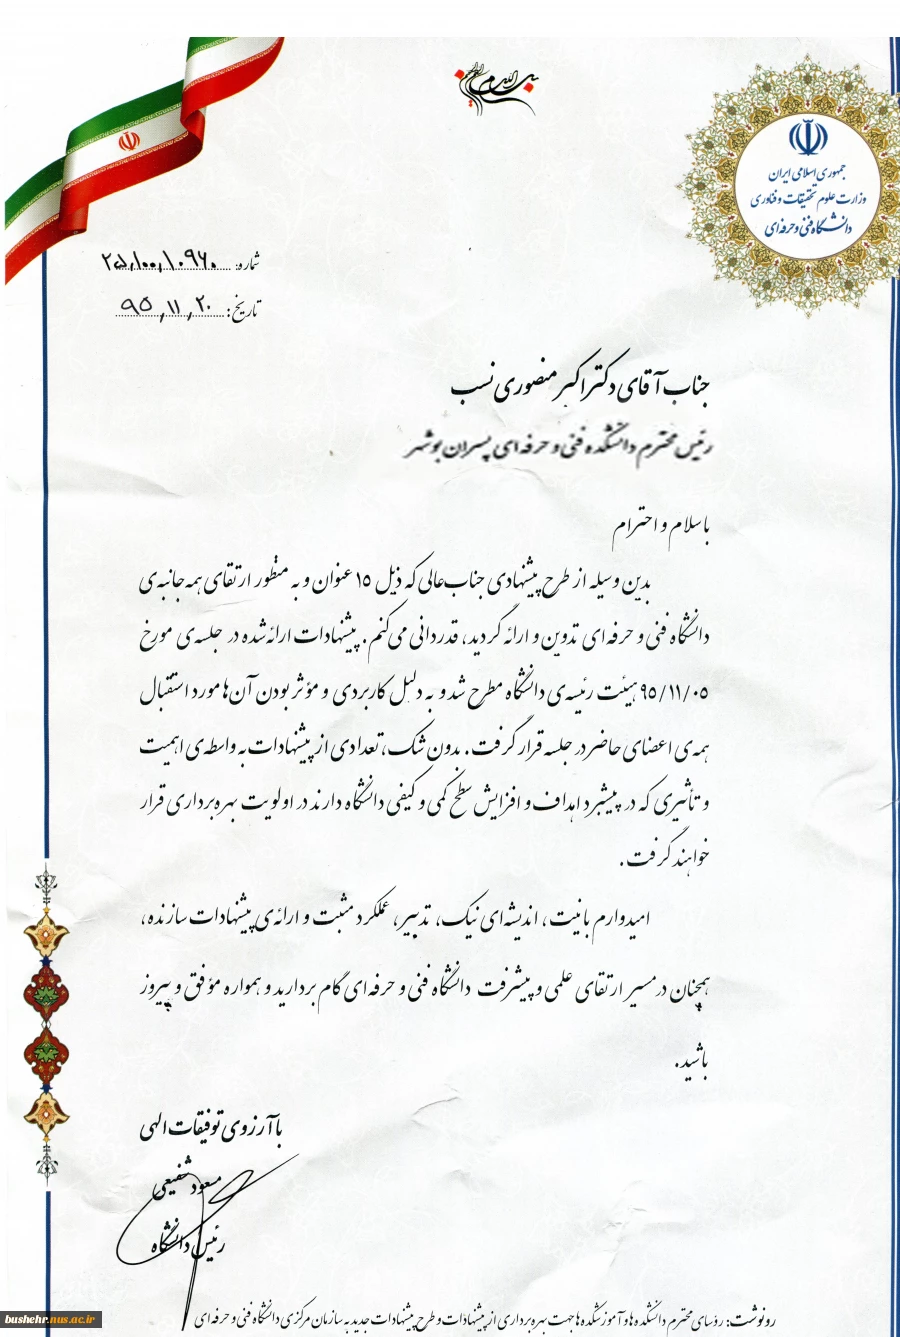 بسم الله الرحمن الرحیم
جمهوری اسلامی ایران
وزارت علوم تحقیقات و فناوری
دانشگاه فنی و حرفه‌ای
شماره: ۲۵/۱۰۰/۱۰۹۶۰
تاریخ: ۹۵/۱۱/۲۰
جناب آقای دکتر اکبر منصوری نسب
رئیس محترم دانشکده فنی و حرفه‌ای پسران بوشهر
با سلام و احترام
بدین وسیله از طرح پیشنهادی جناب‌عالی که ذیل ۱۵ عنوان و به منظور ارتقای همه جانبه‌ی
دانشگاه فنی و حرفه‌ای تدوین و ارائه گردید، قدردانی می‌کنم. پیشنهادات ارائه شده در جلسه‌ی مورخ
۹۵/۱۱/۰۵ هیئت رئیسه‌ی دانشگاه مطرح شد و به دلیل کاربردی و مؤثر بودن آن‌ها مورد استقبال
همه‌ی اعضای حاضر در جلسه قرار گرفت. بدون شک، تعدادی از پیشنهادات به واسطه‌ی اهمیت
و تأثیری که در پیشبرد اهداف و افزایش سطح کمی و کیفی دانشگاه دارند در اولویت بهره‌برداری قرار
خواهند گرفت.
امیدوارم با نیت، اندیشه‌ای نیک، تدبیر، عملکرد مثبت و ارائه‌ی پیشنهادات سازنده،
همچنان در مسیر ارتقای علمی و پیشرفت دانشگاه فنی و حرفه‌ای گام بردارید و همواره مؤفق و پیروز
باشید.
با آرزوی توفیقات الهی
مسعود شفیعی
رئیس دانشگاه
رونوشت: رؤسای محترم دانشکده‌ها و آموزشکده‌ها جهت بهره‌برداری از پیشنهادات و طرح پیشنهادات جدید به سازمان مرکزی دانشگاه فنی و حرفه‌ای
bushehr.nus.ac.ir